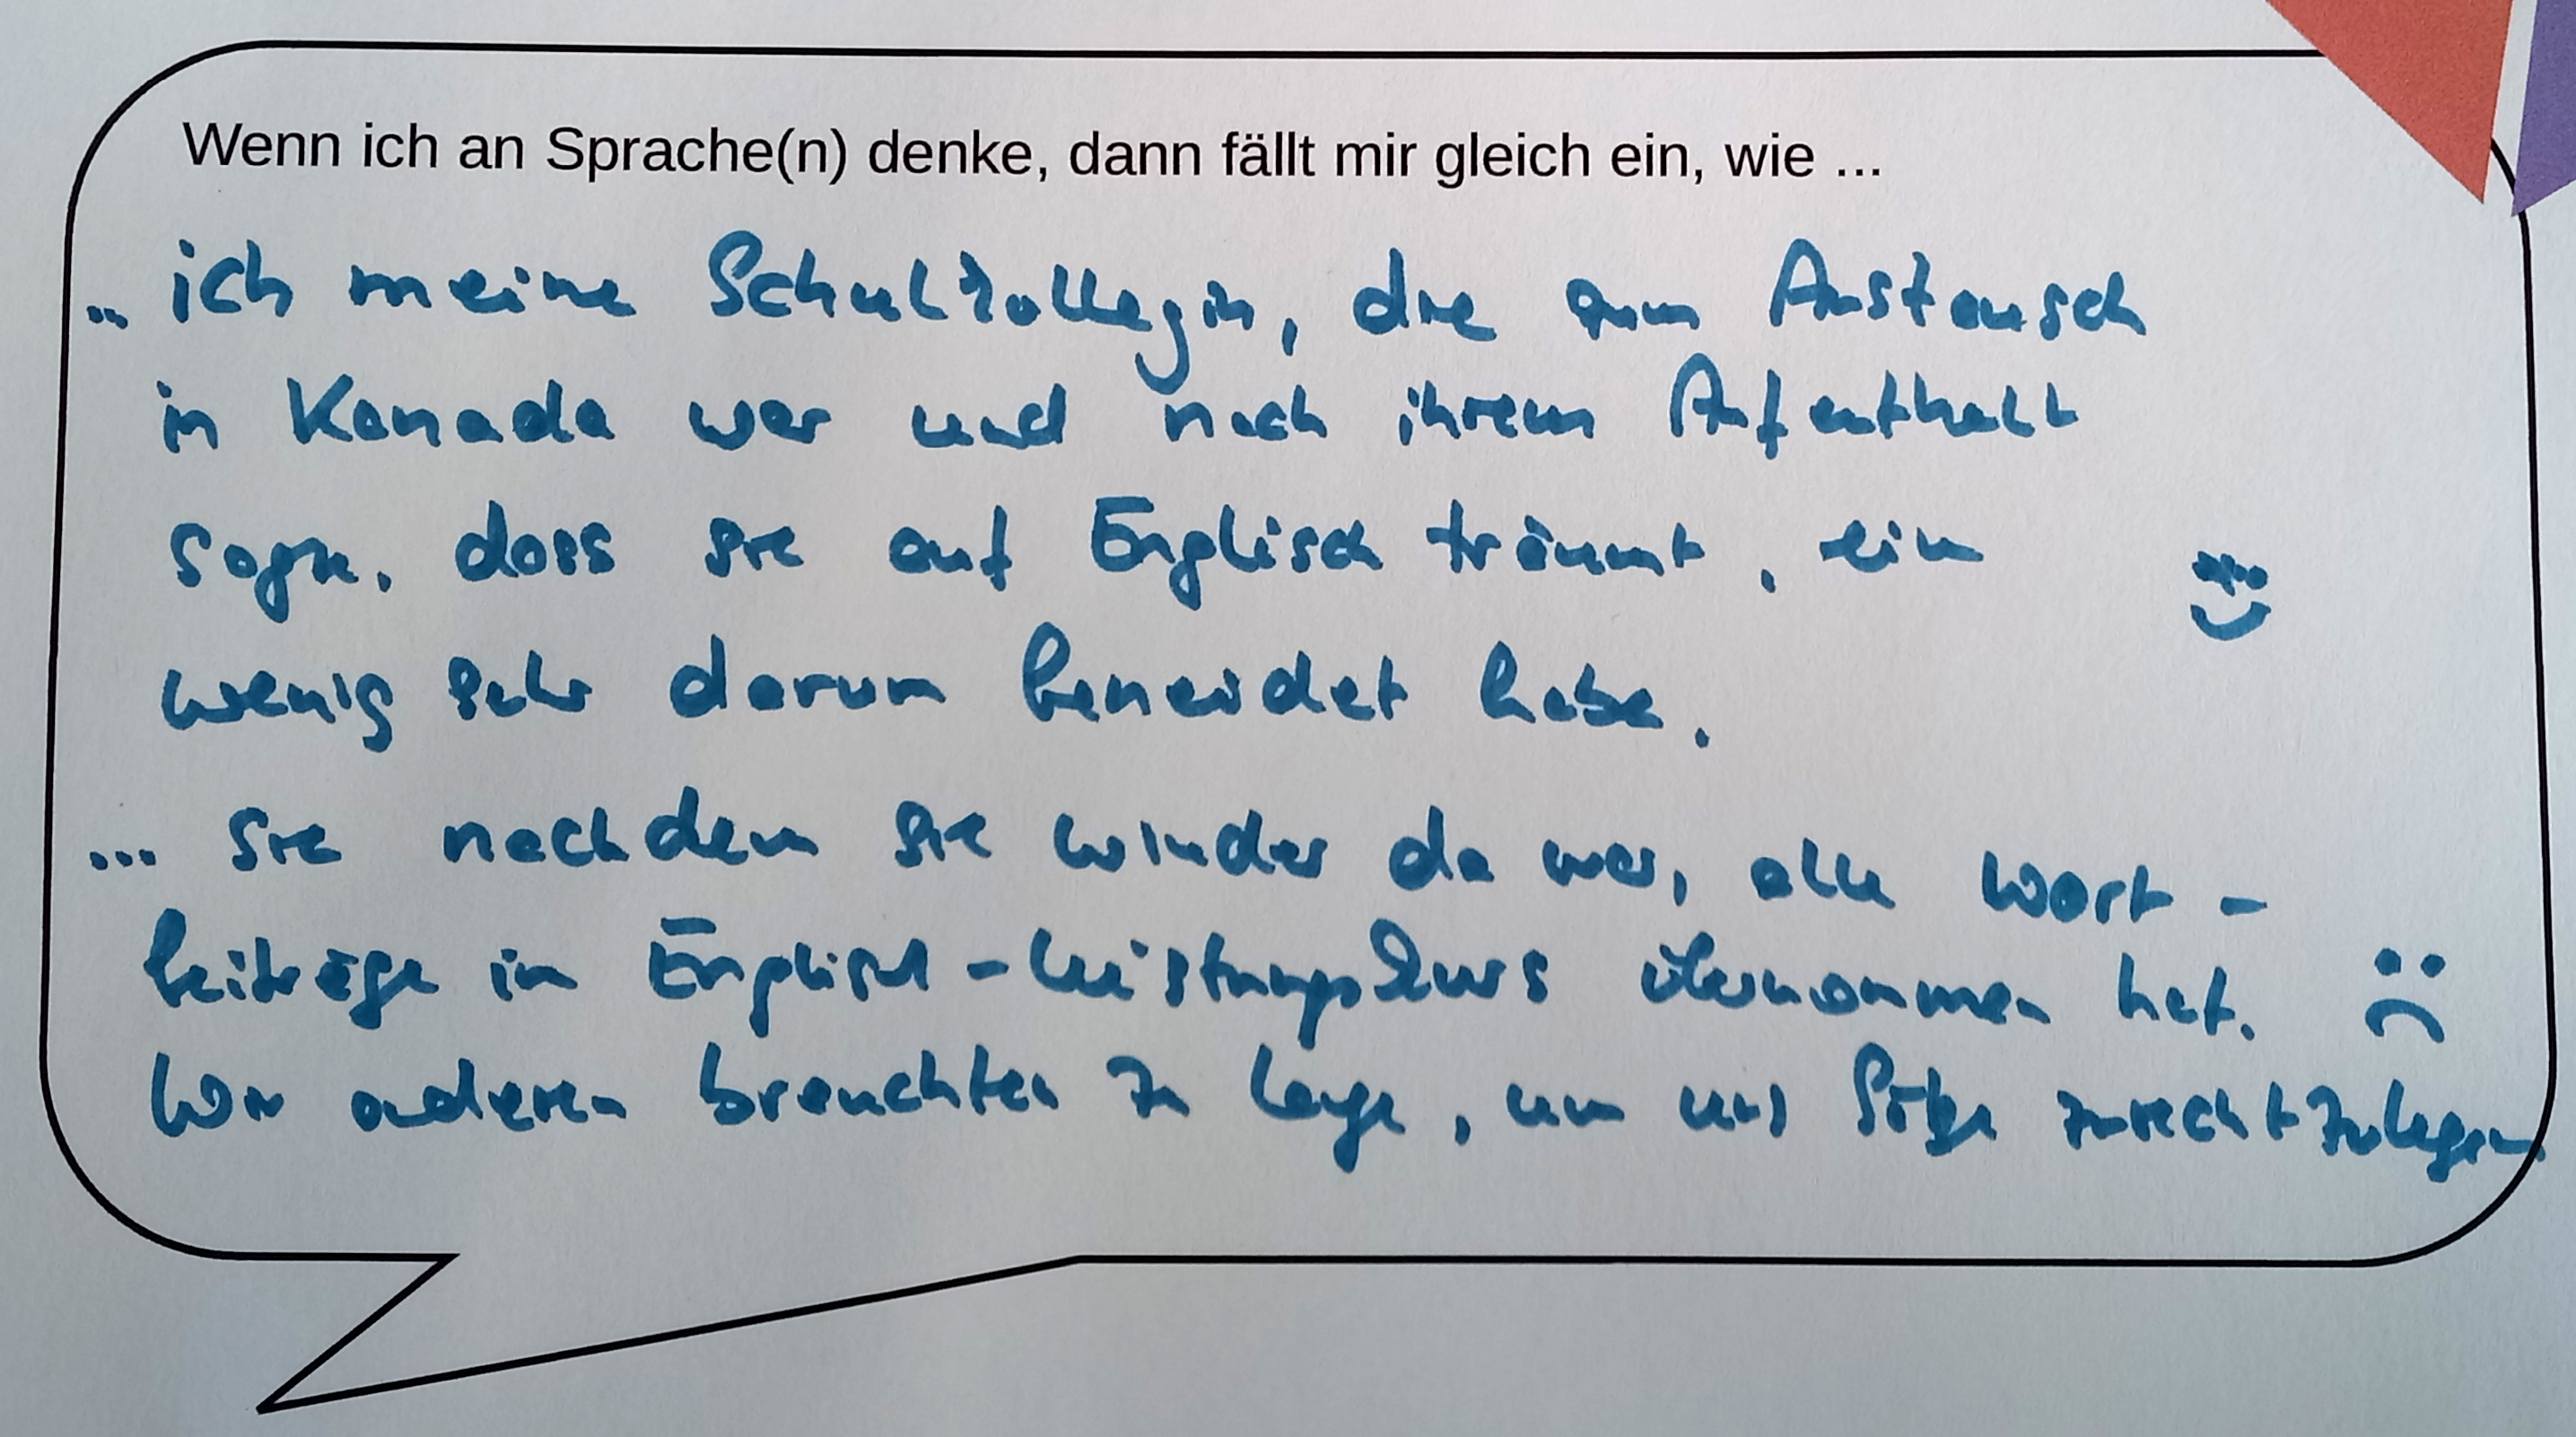 Wenn ich an Sprache(n) denke, dann fällt mir gleich ein, wie ...
... ich meine Schulkollegin, die zum Austausch
in Kanada war und nach ihrem Aufenthalt
sagte, dass sie auf Englisch träumt, ein
wenig sehr darum beneidet habe.
... sie nachdem sie wieder da war, alle Wort-
beiträge im Englisch-Leistungskurs übernommen hat.
Wir anderen brauchten zu lange, um uns Sätze zurechtzulegen.